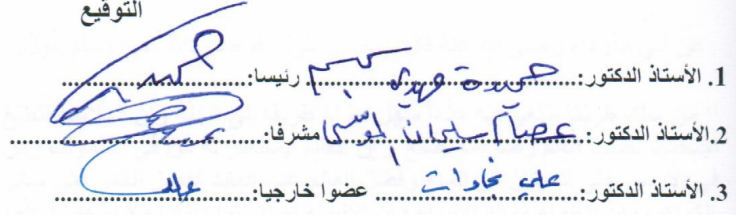 التوقيع
1. الأستاذ الدكتور: حميدة مهدي سميسم رئيسا:
2.الأستاذ الدكتور: عصام سليمان الموسى مشرفا:
3. الأستاذ الدكتور: علي نجادات عضوا خارجيا: